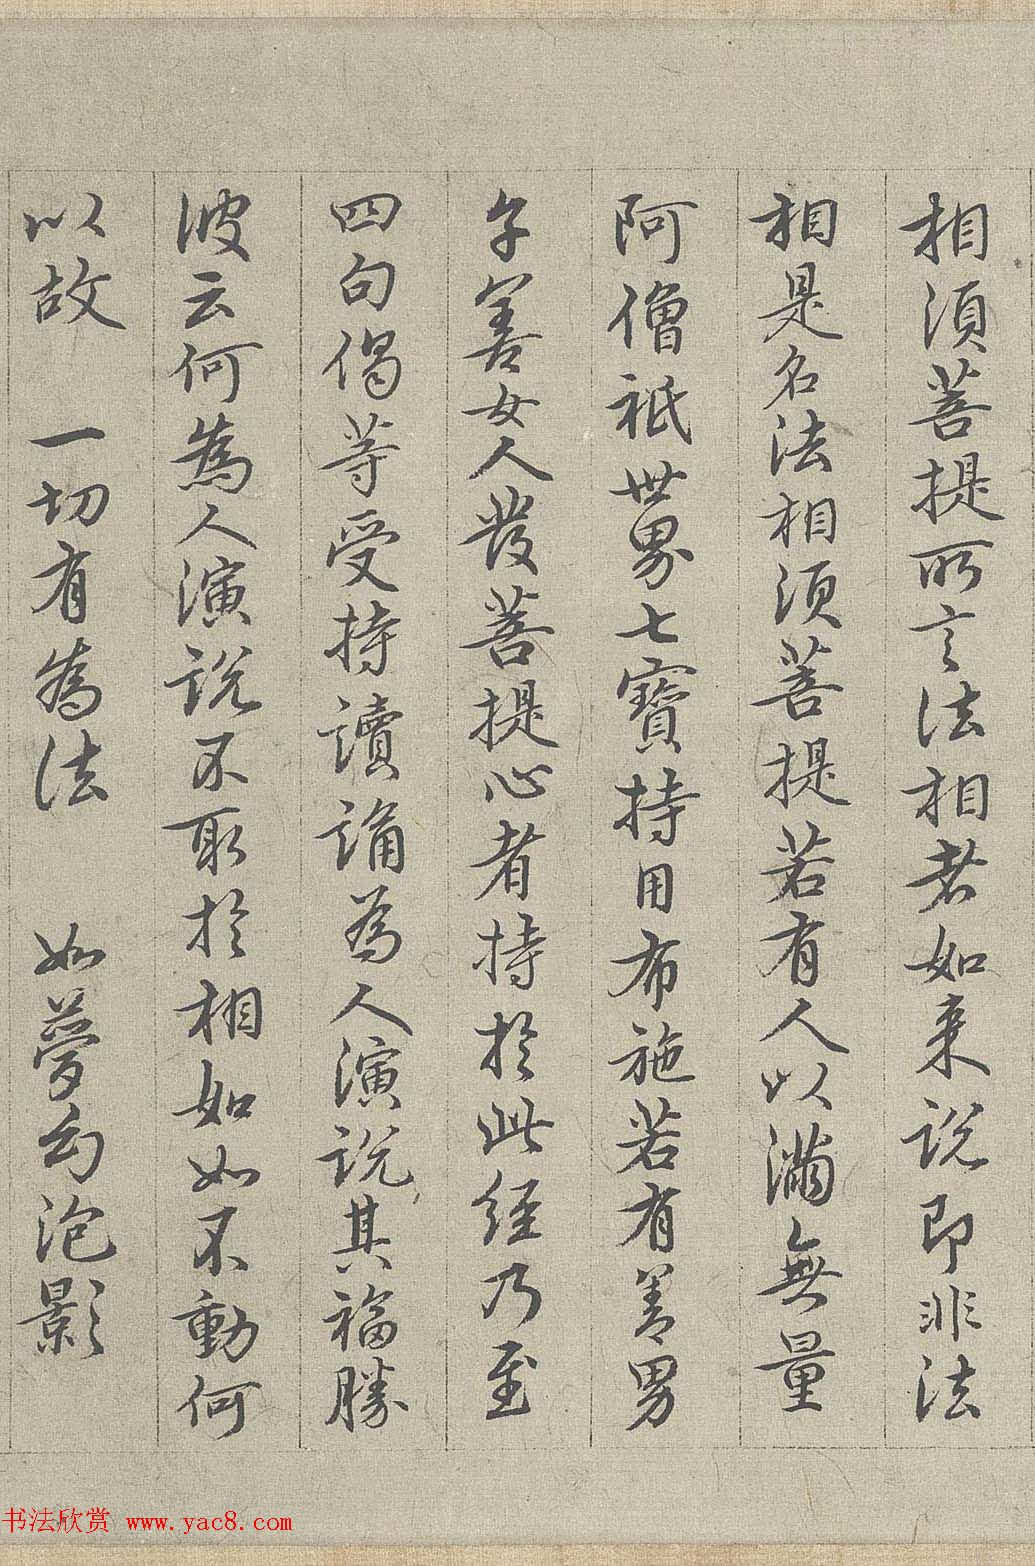 相須菩提所言法相者如来說即非法
相是名法相須菩提若有人以滿無量
阿僧祇世界七寶持用布施若有善男
子善女人發菩提心者持於此經乃至
四句偈等受持讀誦為人演說其福勝
彼云何為人演說不取於相如如不動何
以故 一切有為法 如夢幻泡影
书法欣赏 www.yac8.com